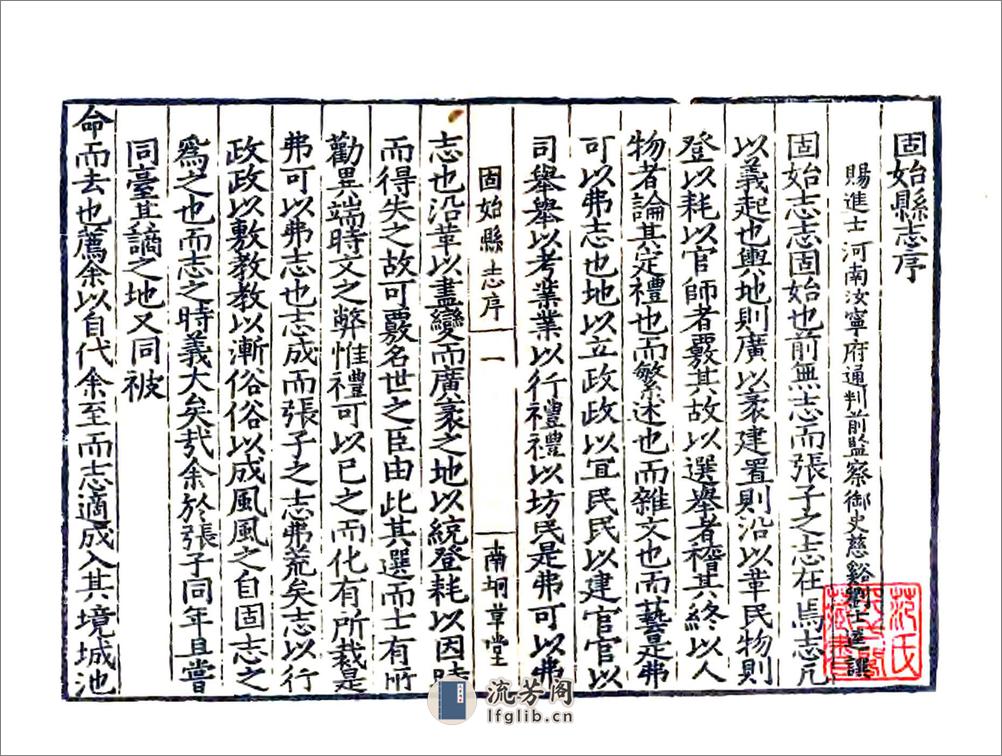 固始縣志序
賜進士河南汝寧府通判前監察御史慈谿劉士逵譔
固始志志固始也前無志而張子之志在焉志凡
以義起也輿地則廣以袤建置則沿以革民物則
登以耗以官師者覈其故以選舉者稽其終以人
物者論其定禮也而繁述也而雜文也而藝是弗
可以弗志也地以立政政以宜民民以建官官以
司舉舉以考業業以行禮禮以坊民是弗可以弗
固始縣志序 一 南坰草堂
志也沿革以盡變而廣袤之地以統登耗以因時
而得失之故可覈名世之臣由此其選而士有所
勸異端時文之弊惟禮可以已之而化有所裁是
弗可以弗志也志成而張子之志弗荒矣志以行
政政以敷教教以漸俗俗以成風風之自固志之
爲之也而志之時義大矣哉余於張子同年且嘗
同臺其謫之地又同被
命而去也薦余以自代余至而志適成入其境城池
范氏天一閣藏書
流芳阁
lfglib.cn